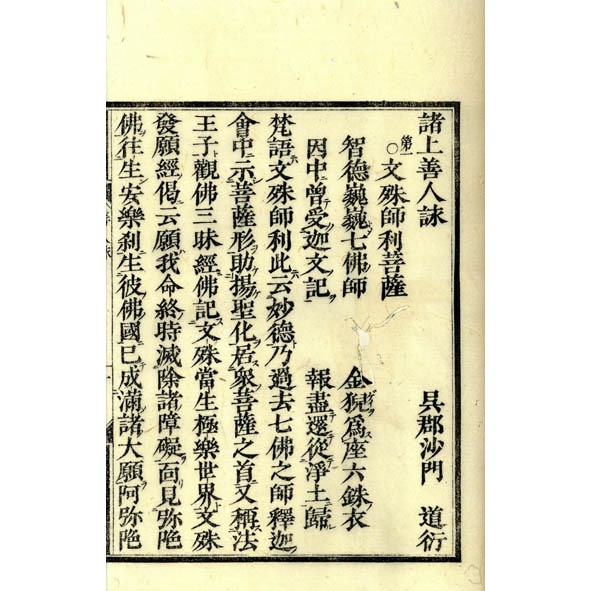 諸上善人詠　吳郡沙門　道衍
第一
○文殊師利菩薩
智德巍巍七佛師　金猊爲座六銖衣
因中曾受迦文記　報盡還從淨土歸
梵語文殊師利此云妙德乃過去七佛之師釋迦
會中示菩薩形助揚聖化居衆菩薩之首又稱法
王子觀佛三昧經佛記文殊當生極樂世界文殊
發願經偈云願我命終時滅除諸障礙面見弥陁
佛往生安樂刹生彼佛國已成滿諸大願阿弥陁